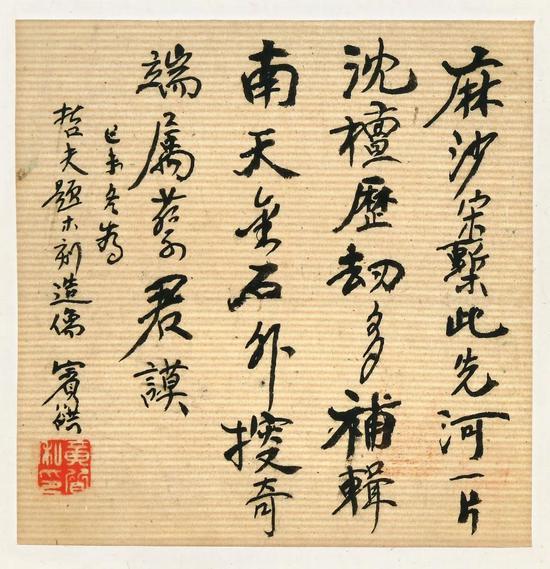 麻沙宋槧此先河一片
沈檀歷劫多補輯
南天金石外搜奇
端屬蔡君謨
己未冬為
哲夫題木刻造像 賓
黃質私印